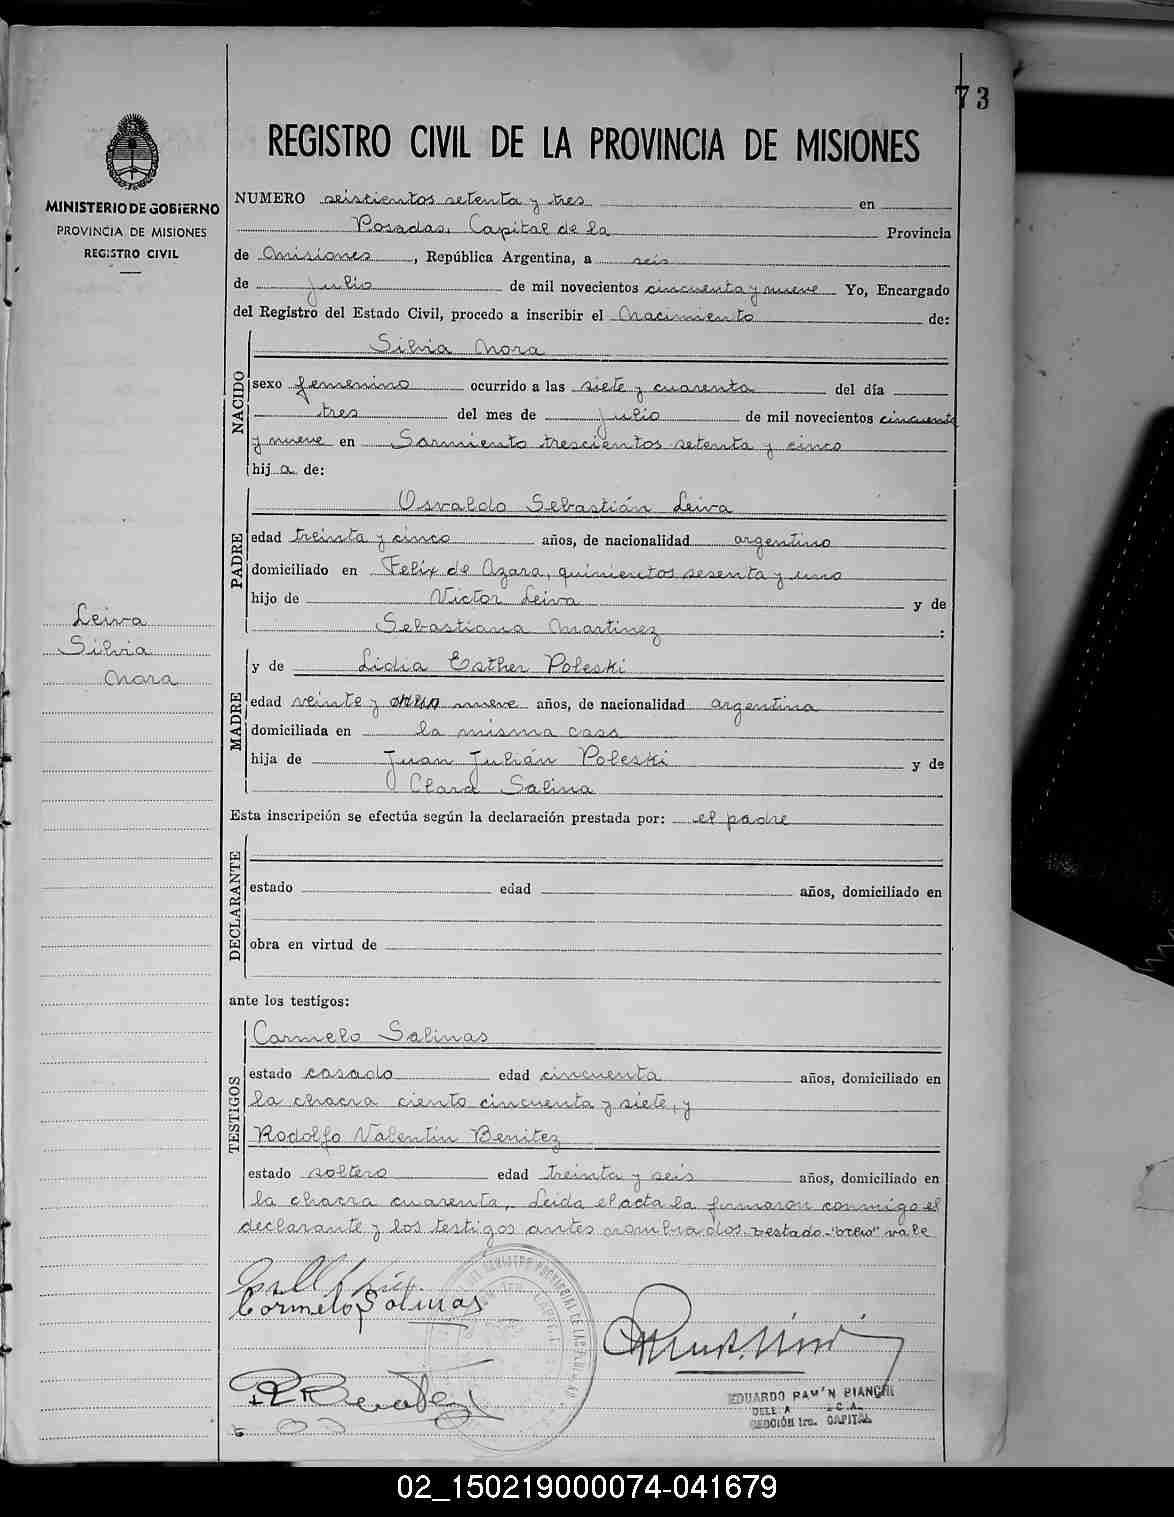 73
REGISTRO CIVIL DE LA PROVINCIA DE MISIONES
MINISTERIO DE GOBIERNO
PROVINCIA DE MISIONES
REGISTRO CIVIL
NUMERO seiscientos setenta y tres en
Posadas, Capital de la Provincia
de Misiones, República Argentina, a seis
de Julio de mil novecientos cincuenta y nueve Yo, Encargado
del Registro del Estado Civil, procedo a inscribir el Nacimiento de:
NACIDO
Silvia Nora
sexo femenino ocurrido a las siete y cuarenta del día
tres del mes de julio de mil novecientos cincuenta
y nueve en Sarmiento trescientos setenta y cinco
hij a de:
PADRE
Osvaldo Sebastián Leiva
edad treinta y cinco años, de nacionalidad argentino
domiciliado en Felix de Azara, quinientos sesenta y uno
hijo de Victor Leiva y de
Sebastiana Martinez :
Leiva
Silvia
Nora
MADRE
y de Lidia Esther Poleski
edad veinte y nueve años, de nacionalidad argentina
domiciliada en la misma casa
hija de Juan Julián Poleski y de
Clara Salina
Esta inscripción se efectúa según la declaración prestada por: el padre
DECLARANTE
estado edad años, domiciliado en
obra en virtud de
ante los testigos:
TESTIGOS
Carmelo Salinas
estado casado edad cincuenta años, domiciliado en
la chacra ciento cincuenta y siete, y
Rodolfo Valentín Benitez
estado soltero edad treinta y seis años, domiciliado en
la chacra cuarenta, Leida el acta la firmaron conmigo el
declarante y los testigos antes nombrados. testado-"ocho" vale
Carmelo Salinas
EDUARDO RAMON BIANCHI
SECCIÓN 1ra. CAPITAL
02_150219000074-041679